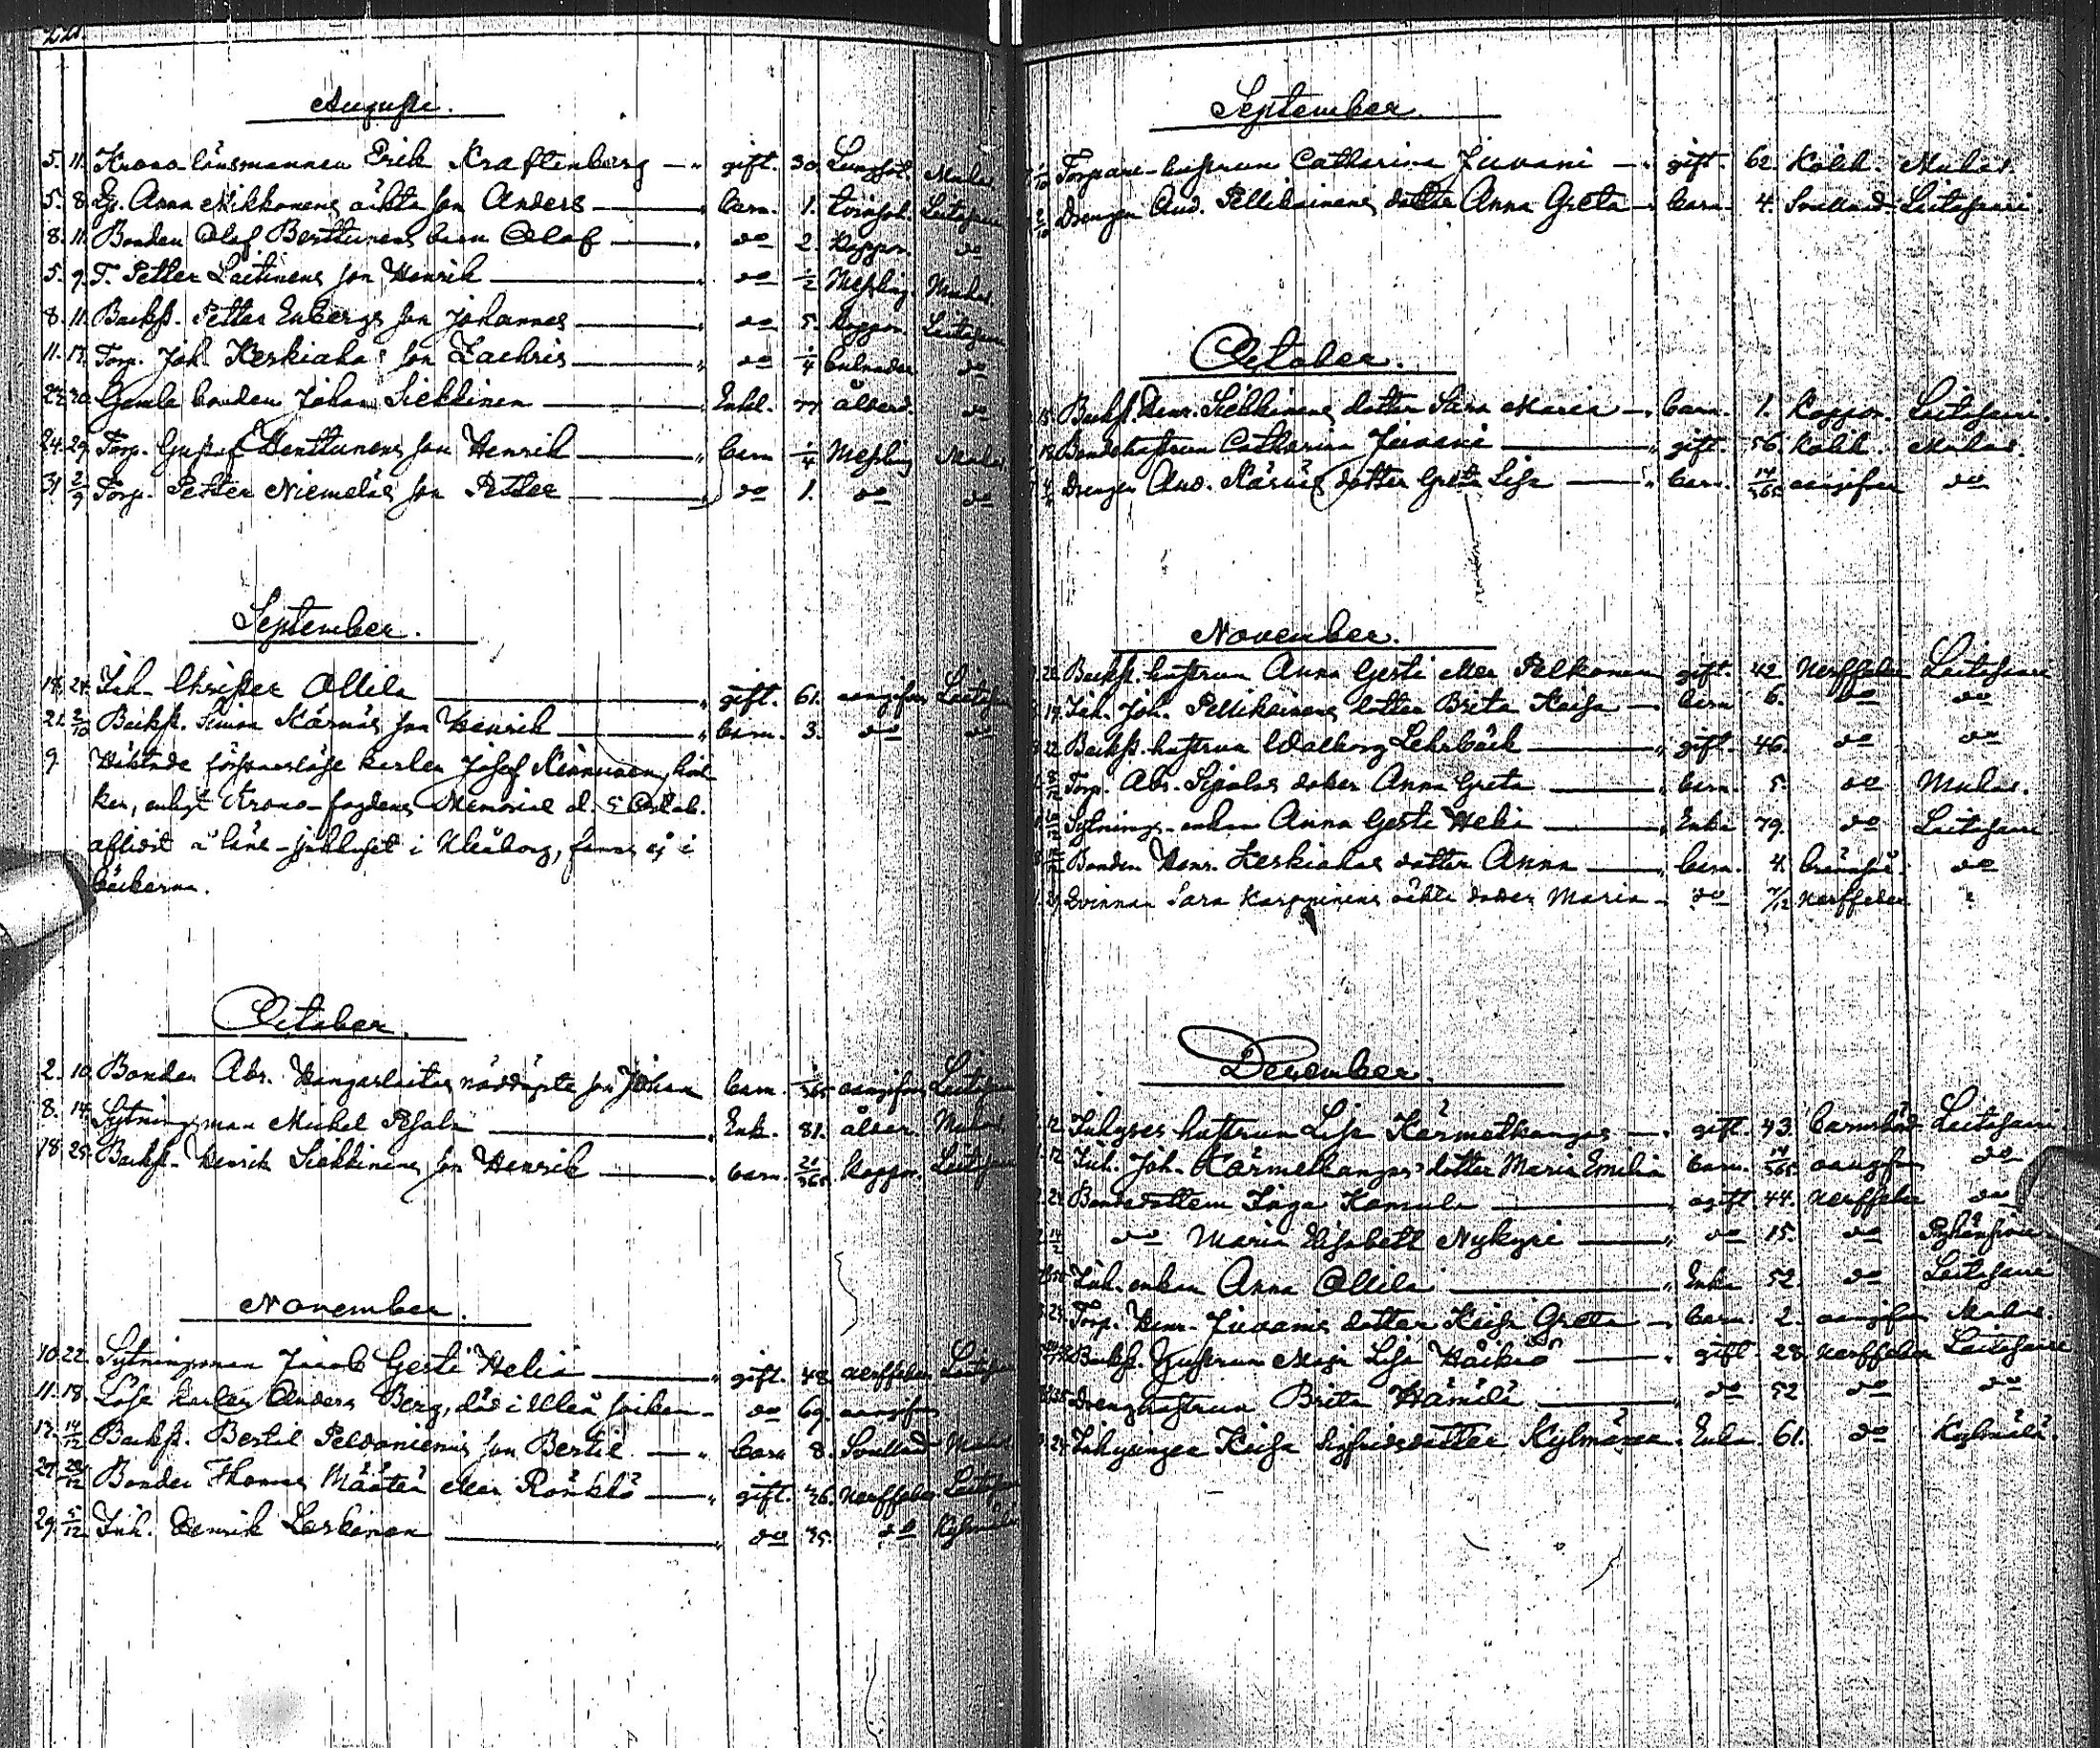 Augusti.
5. 11. Krono länsmannen Erik Kraftenberg — gift. 30. Lungsot. Muhos
5. 8. Anna Mikkonens äkta son Anders — barn. 1. Leitosari
8. 11. Bonden Olof Berttunens barn Olof — do 2. Koppor. do
5. 9. T. Petter Laitinens son Henrik — do 1/2 Messling Muhos.
8. 11. Backst. Petter Enbergs son Johannes — do 5. Koppor. Leitosari
11. 17. Torp. Joh. Keskiahos son Zachris — do 1/4 do
22. 30. Gamle bonden Johan Siekkinen — Enkl. 77 ålderd. do
24. 29. Torp. Gustaf Henttunens son Henrik — barn 1/4 Messling Muhos
31 2/9 Torp. Petter Niemeläs son Petter — do 1. do do
September.
18. 24. Inh. Christer Ollila — gift. 61. oangifven Leitosari
21. 2/10 Backst. Simon Kärnäs son Henrik — barn. 3. do do
9. Häktade försvarslöse karlen Josef Kinnunen, hvil
ken, enligt Krono-fogdens Memorial d. 5 October
aflidit å läns-sjukhuset i Uleåborg, fanns ej i
böckerna.
October.
2. 10. Bonden Abr. Kangaslaitas nöddöpte son Johan barn. 1/365 oangifven Leitosari
8. 14. Sytningsman Michel Pesola — Enk. 81. ålder. Muhos
18. 25. Backst. Henrik Siekkinens son Henrik — barn. 21/365 Koppor. Leitosari
November.
10. 22. Sytningsman Jacob Gesti Helia — gift. 48. Nerffeber Leitosari
11. 18. Löse karlen Anders Berg, död i Uleå socken — do 69. oangifven
17. 14/12 Backst. Bertil Pelvoniemis son Bertil — barn 8. Muhos
27. 20/12 Bonden Thomas Määttä eller Rönkkö — gift. 46. Nerffeber Leitosari
29. 5/12 Inh. Henrik Leskinen — do 35. do Kylmälä
September.
1/10 Torpare-hustrun Catharina Juvani — gift. 62. Kolik. Muhos.
2/10 Drengen And. Pellikainens dotter Anna Greta — barn 4. Leitosari.
October.
15. Backst. Henr. Siekkinens dotter Sara Maria — barn. 1. Koppor. Leitosari.
18. Bondehustrun Catharina Juvani — gift. 56. Kolik. Muhos.
Drengen And. Kärnäs dotter Greta Lisa — barn. 14/365 oangifven do
November.
22 Backst. hustrun Anna Gesti eller Pelkonen gift. 42. Nerffeber Leitosari
17. Inh. Joh. Pellikainens dotter Brita Kaisa — barn 6. do do
22 Backst. hustrun Walborg Lehrbäck — gift. 46. do do
Torp. Abr. Sipolas dotter Anna Greta — barn. 5. do Muhos.
Sytnings-enkan Anna Gesti Helia — Enka 79. do Leitosari
Bonden Henr. Keskiahos dotter Anna — barn. 4. do
Qvinnan Sara Karppinens äkta dotter Maria — do 7/12 Nerffeber
December.
12 Inhyses hustrun Lisa Kärmetkangas — gift. 43. barnsbörd Leitosari.
12 Inh. Joh. Kärmetkangas dotter Maria Emilia barn. 14/365 oangifven do
Bondedottern Inga Komula — ogift. 44. Nerffeber do
do Maria Elisabett Nykyri — do 15. do Pyhänsivu
Inh. enkan Anna Ollila — Enka 52. do Leitosari
Torp. Henr. Juvanis dotter Kaisa Greta — barn. 2. oangifven Muhos.
Backst. hustrun Maja Lisa Häikiö — gift. 28. Nerffeber Leitosari
Drenghustrun Brita Hämälä — do 52 do do
Inhysingen Kaisa Sigfridsdotter Kylmänen Enka. 61. do Kylmälä.